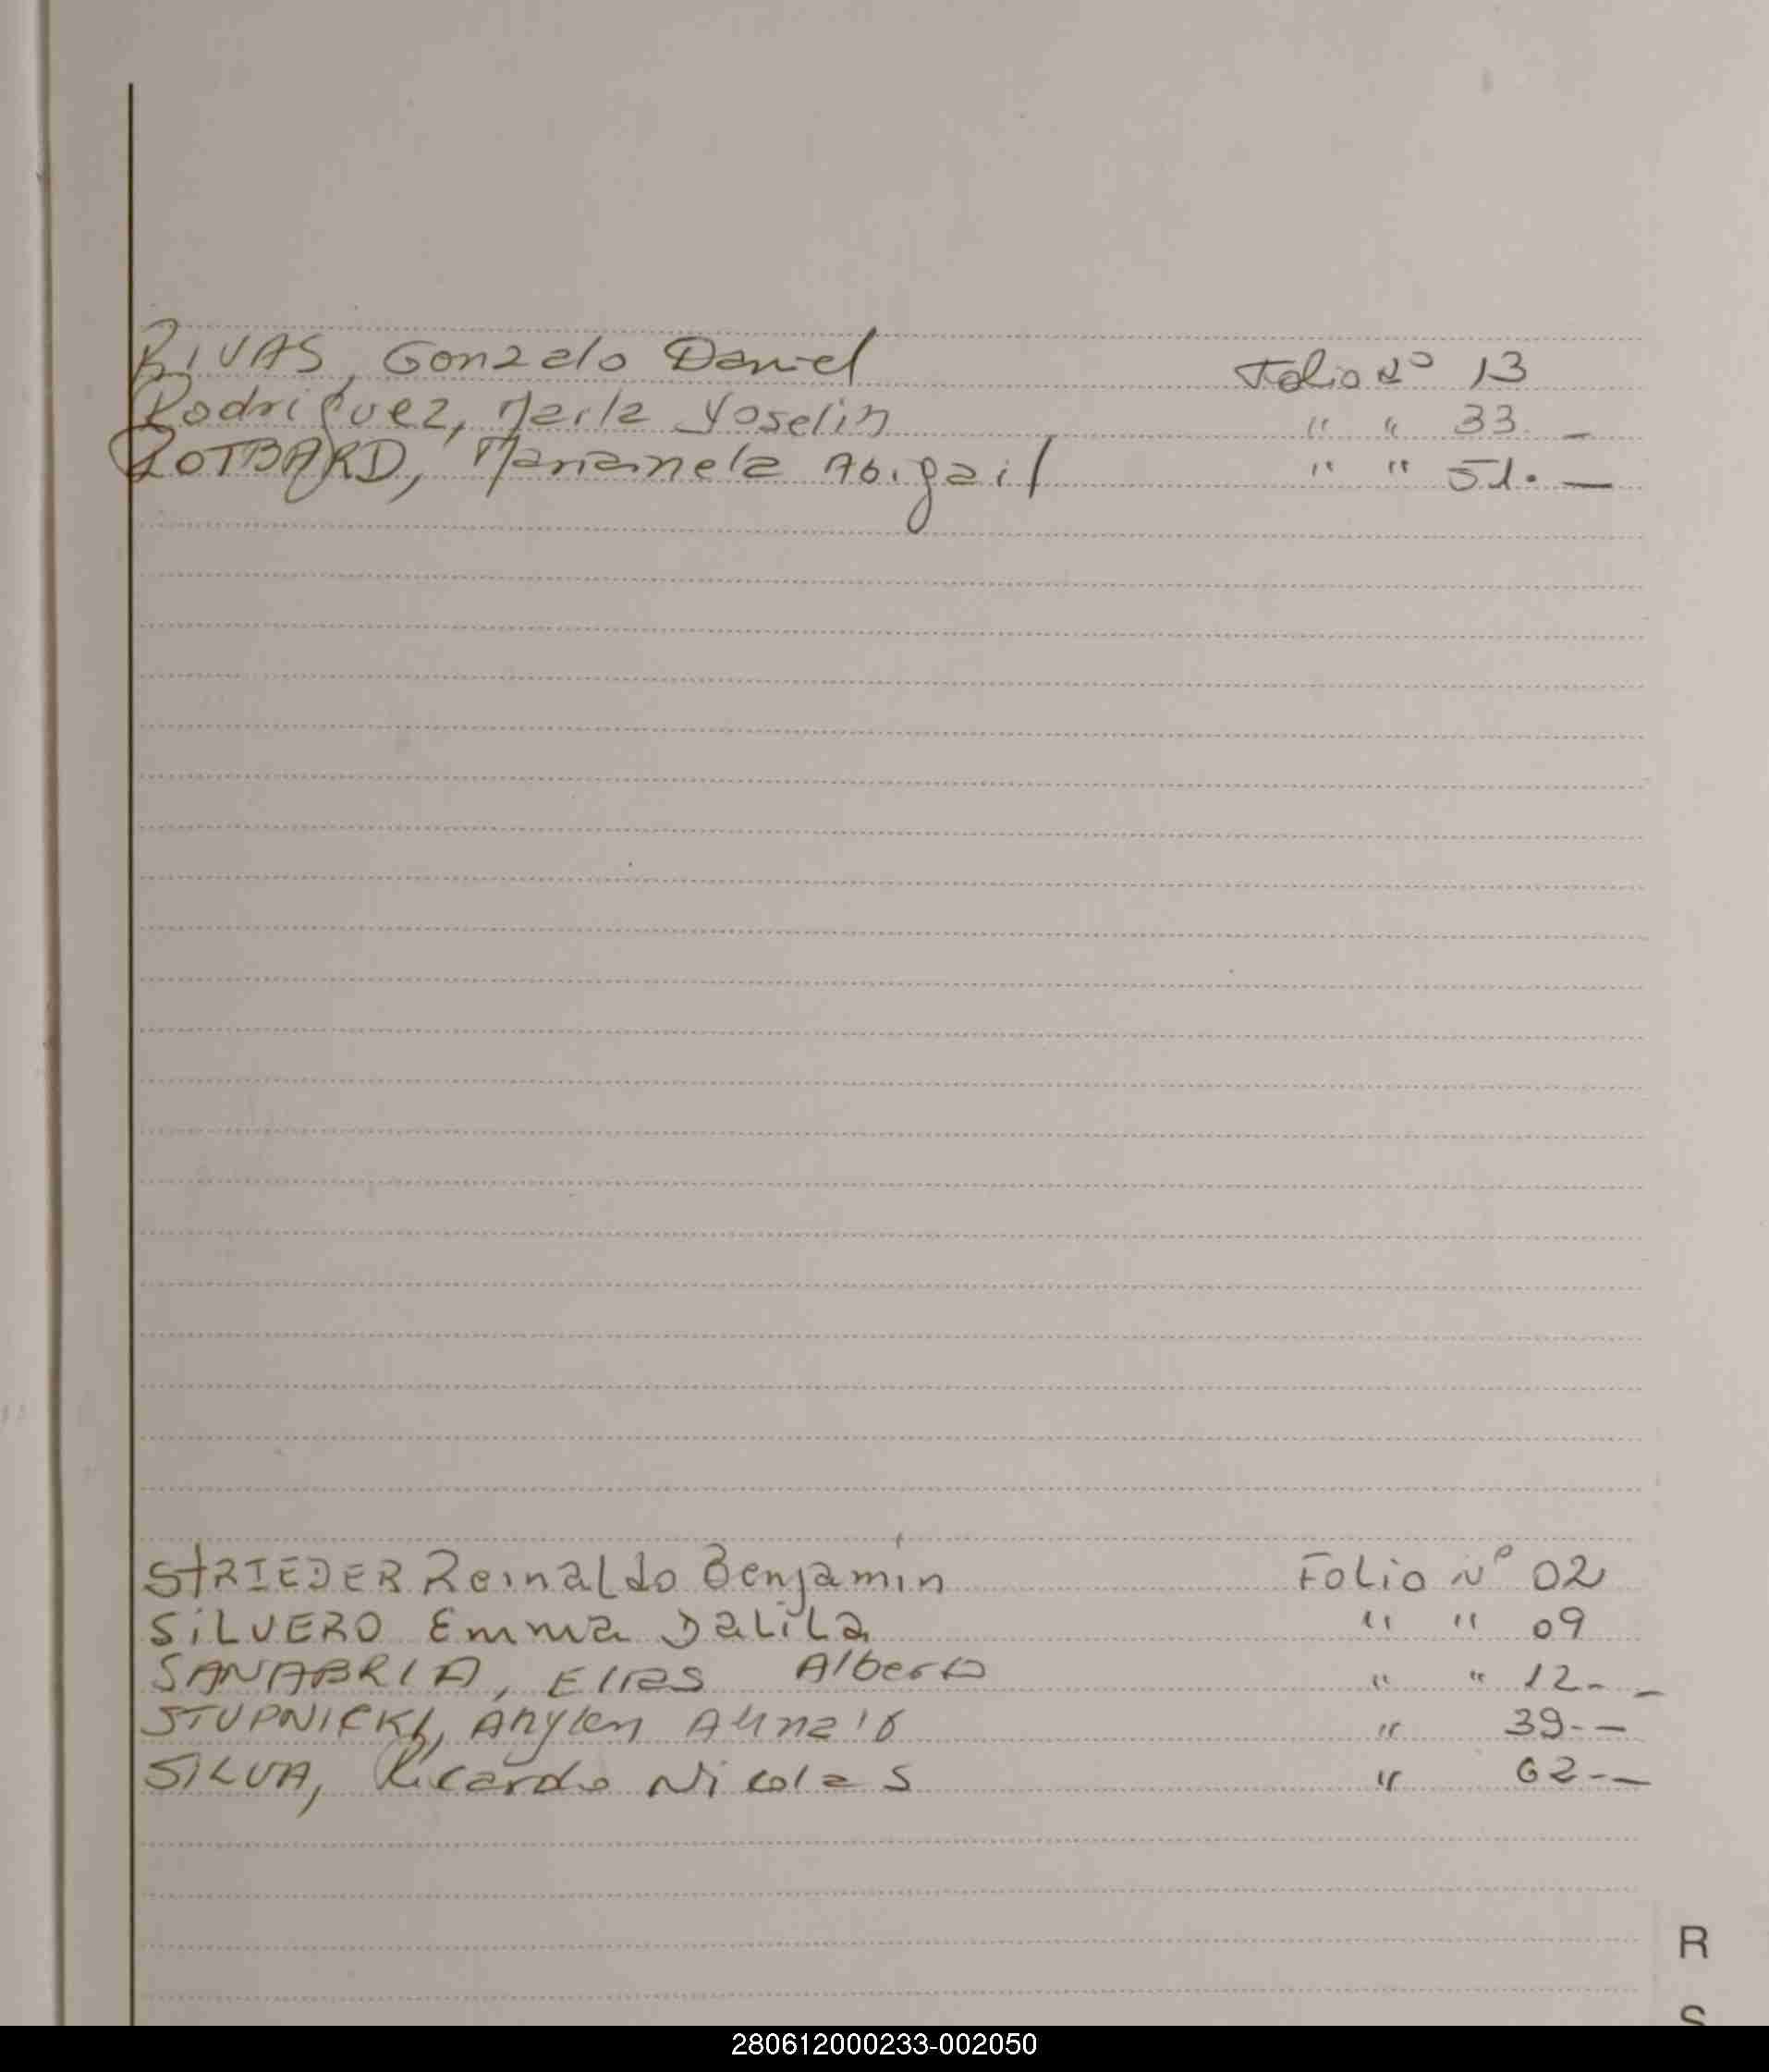 RIVAS, Gonzalo Daniel Folio Nº 13
Rodriguez, Marla Yoselin " " 33 _
ROTBARD, Marianela Abigail " " 51. —
STRIEDER Reinaldo Benjamin Folio Nº 02
SiLVERO Emma Dalila " " 09
SANABRIA, Elias Alberto " " 12- _
STUPNICKI, " 39-—
SILVA, Ricardo Nicolas " 62-—
R
S
280612000233-002050